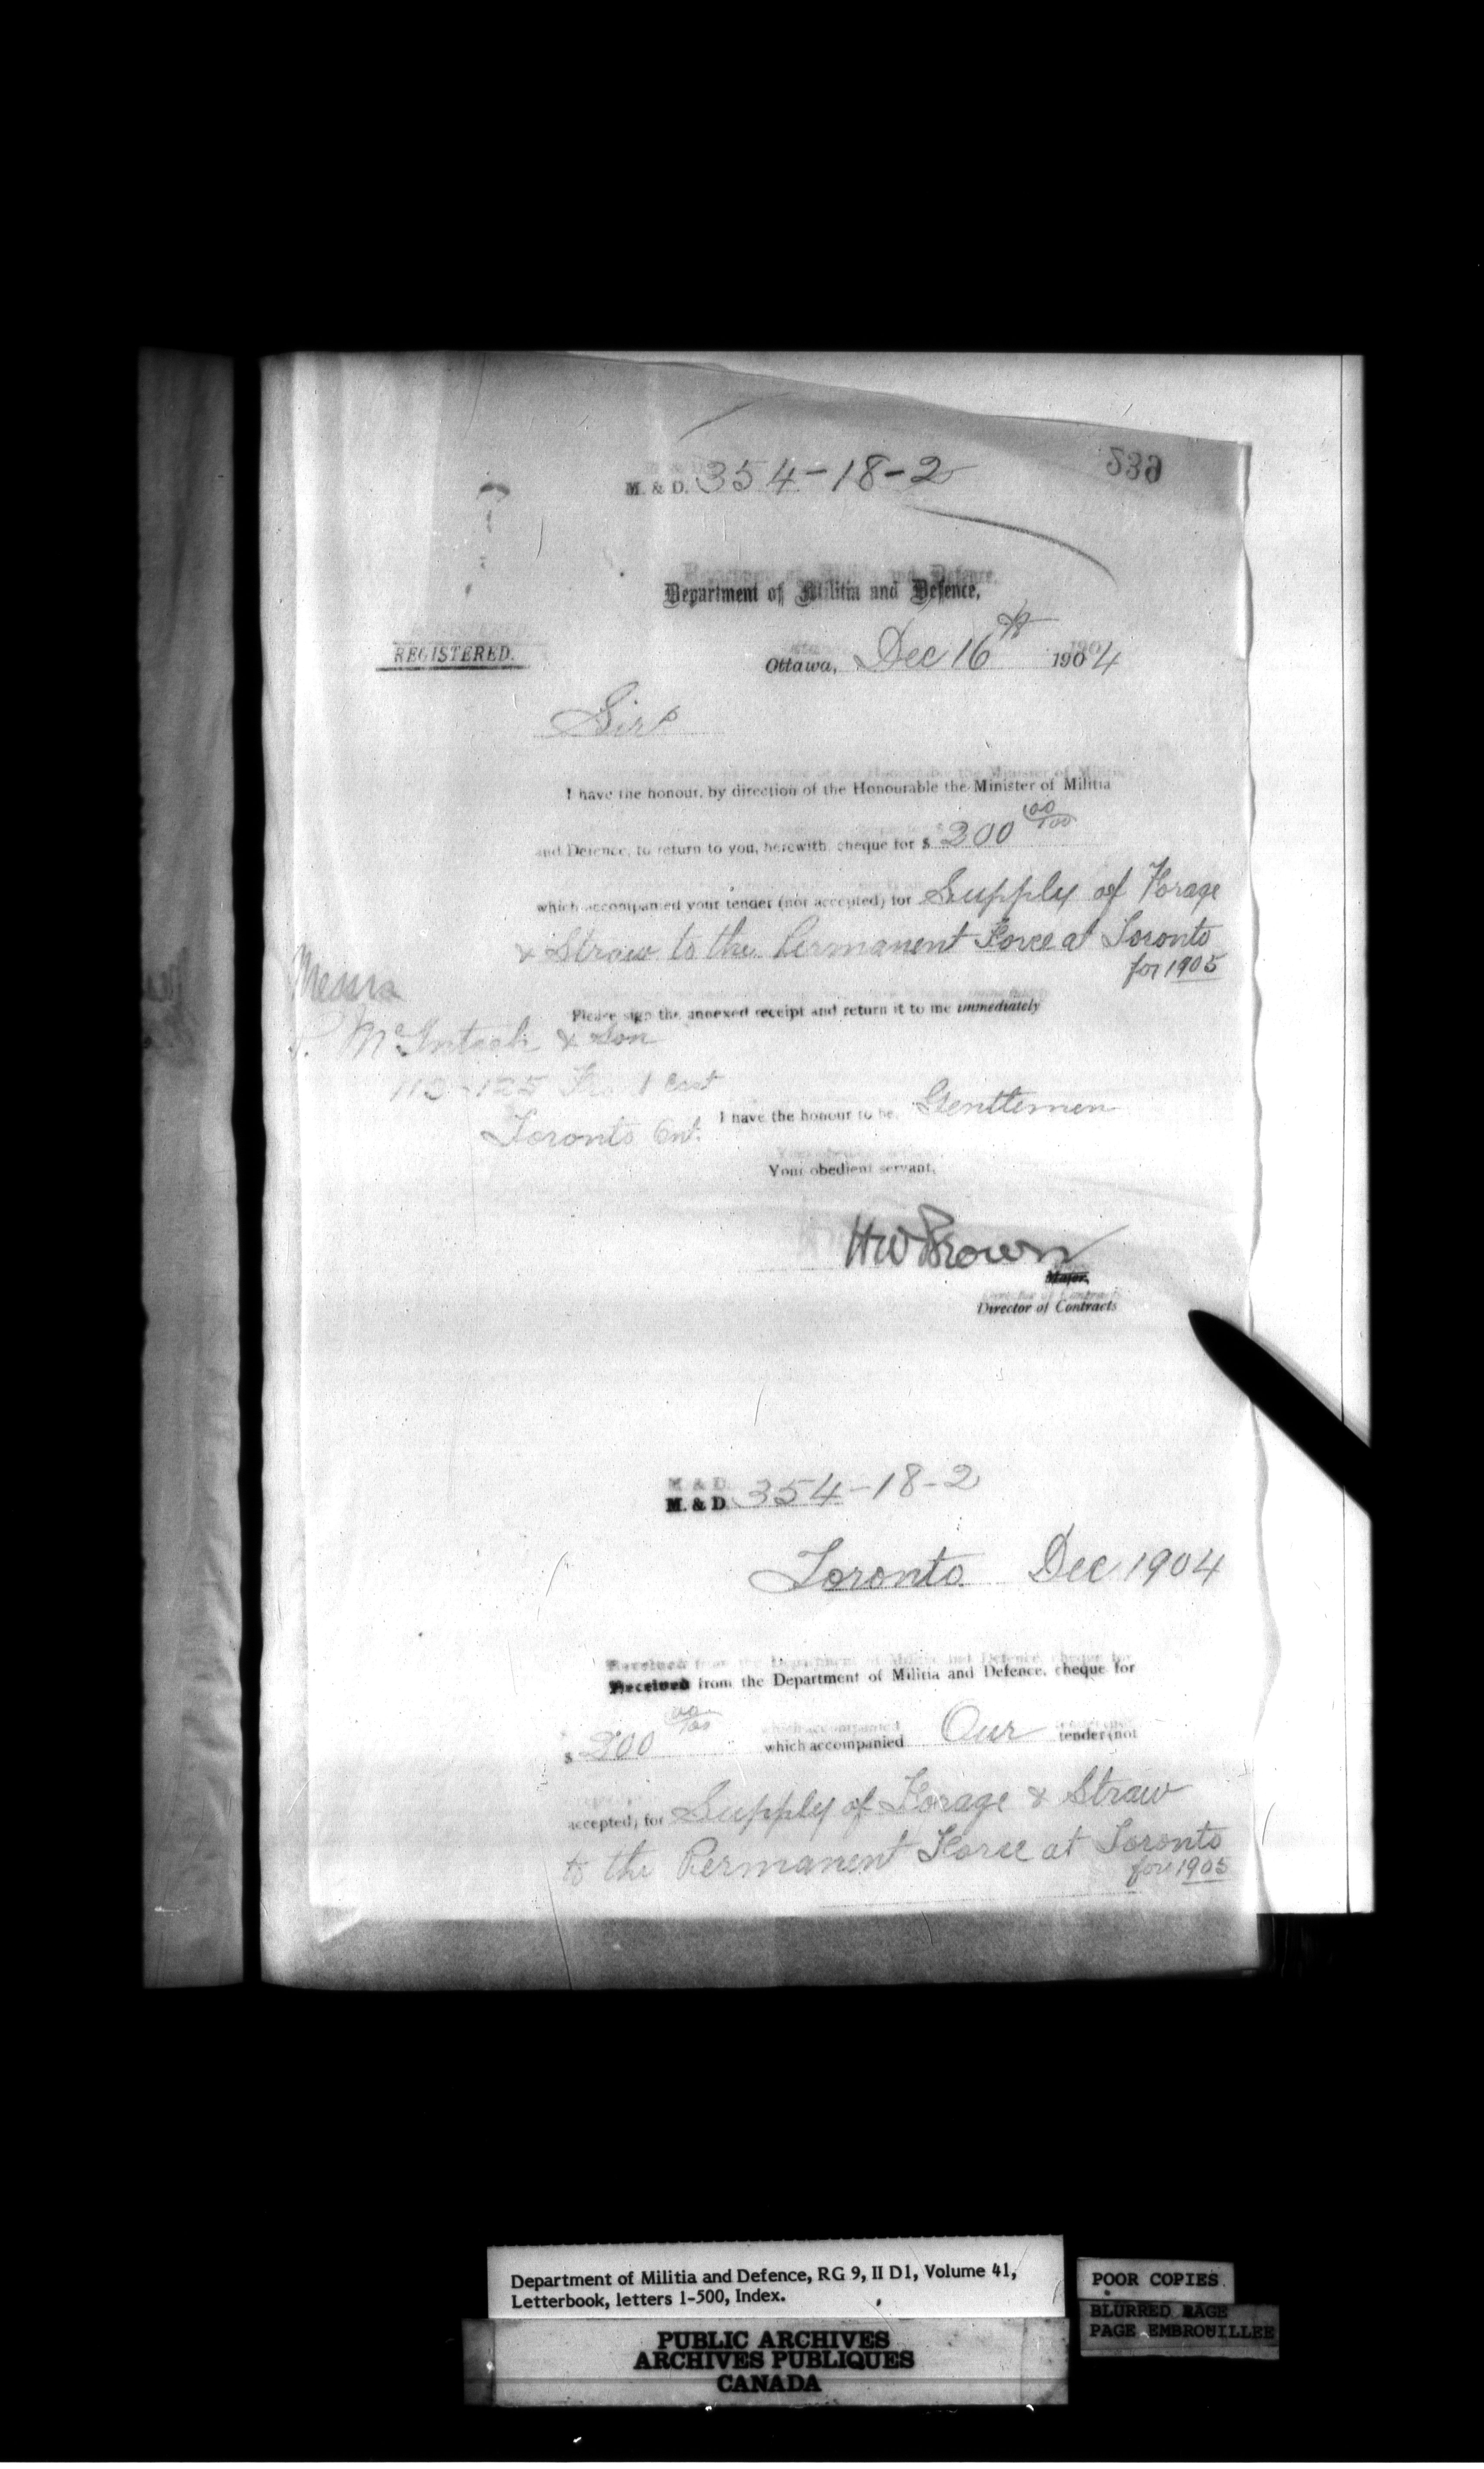 M. & D. 354-18-2
Department of Militia and Defence,
REGISTERED.
Ottawa, Dec 16th 1904
Sirs
I have the honour, by direction of the Honourable the Minister of Militia
and Defence, to return to you, herewith, cheque for $ 200 00/100
which accompanied your tender (not accepted) for Supply of Forage
& Straw to the Permanent Force at Toronto
for 1905
Please sign the annexed receipt and return it to me immediately
Messrs
McIntosh & Son
East
Toronto Ont.
I have the honour to be, Gentlemen
Your obedient servant,
HW Brown
Major,
Director of Contracts
M. & D. 354-18-2
Toronto Dec 1904
Received from the Department of Militia and Defence, cheque for
$ 200 00/100 which accompanied Our tender (not
accepted) for Supply of Forage & Straw
to the Permanent Force at Toronto
for 1905
Department of Militia and Defence, RG 9, II D1, Volume 41,
Letterbook, letters 1-500, Index.
PUBLIC ARCHIVES
ARCHIVES PUBLIQUES
CANADA
POOR COPIES
BLURRED PAGE
PAGE EMBROUILLEE